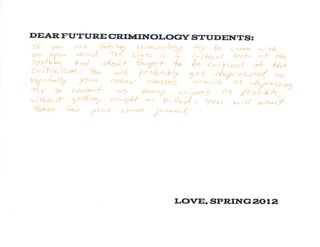 DEAR FUTURE CRIMINOLOGY STUDENTS:
If you are taking criminology try to come with
an open mind. The class is a critical look at the
system but don't forget to be critical of the
criticism. You will probably get depressed, so
hopefully your other classes aren't as depressing.
Try to commit as many crimes as possible,
without getting caught or killed. You will want
them for your crime journal.
LOVE, SPRING 2012